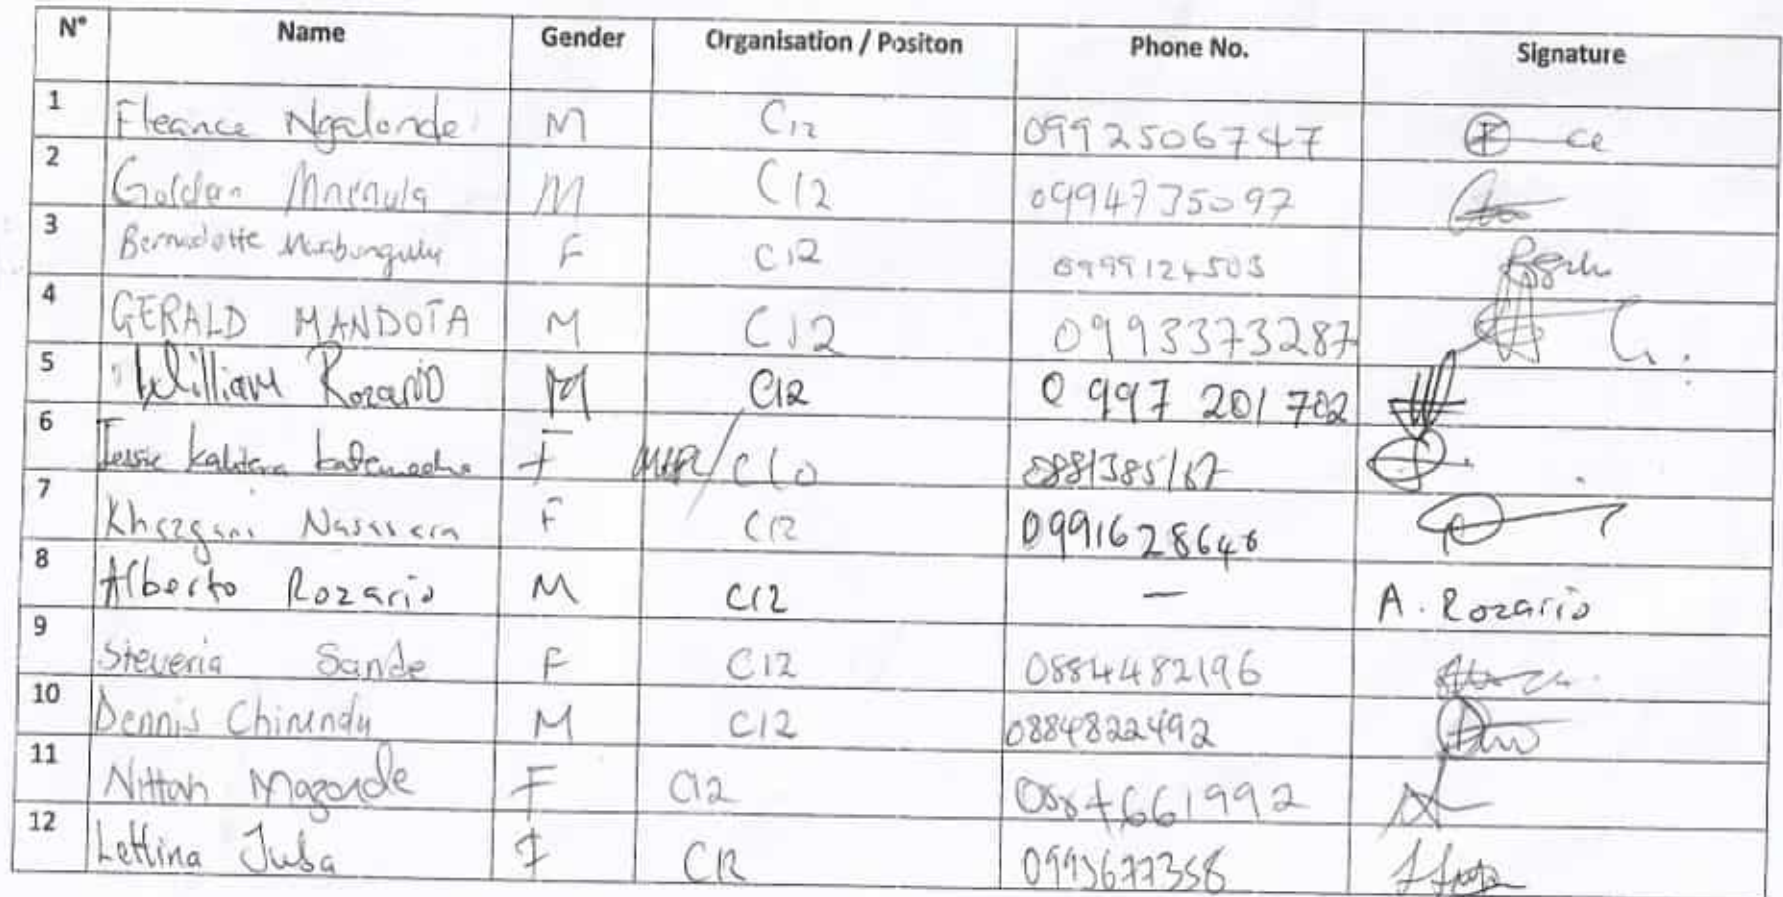 N° Name Gender Organisation / Positon Phone No. Signature
1 Fleance Ngalonde M C12 0992506747 ce
2 Golden M C12 0994735097
3 Bernadette F C12 0999124503
4 GERALD MANDOTA M C12 0993373287 G.
5 William Rozario M C12 0 997 201 702
6 Jessie F 0881385167
7 F C12
8 Alberto Rozario M C12 — A. Rozario
9 Steveria Sande F C12 0884482196
10 Dennis Chirundu M C12 0884822492
11 Nittah Mazonde F C12 0887661992
12 Lettina Juba F C12 0993677358